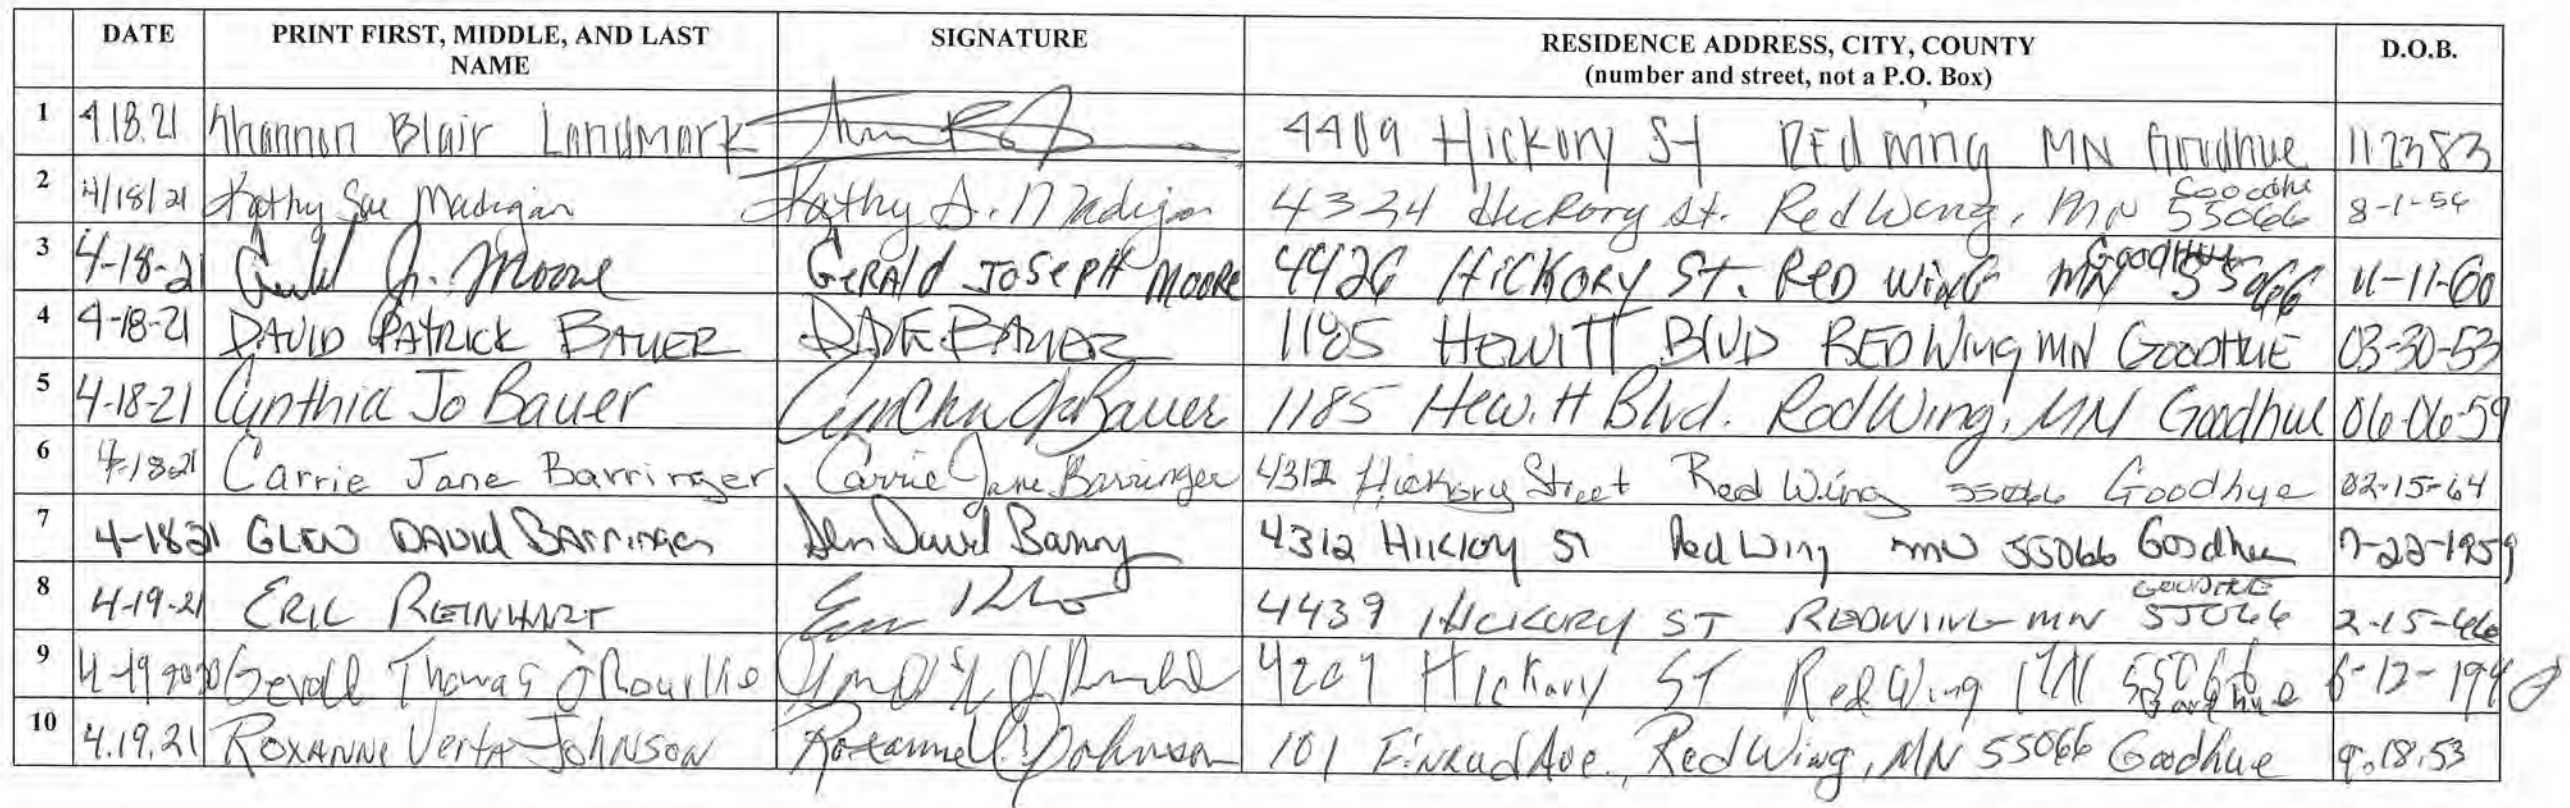 DATE PRINT FIRST, MIDDLE, AND LAST NAME SIGNATURE RESIDENCE ADDRESS, CITY, COUNTY (number and street, not a P.O. Box) D.O.B.
1 4.18.21 Shannon Blair Landmark 4409 Hickory St Red Wing MN Goodhue 112383
2 4/18/21 Kathy Sue Madigan Kathy S. Madigan 4324 Hickory St. Red Wing, MN Goodhue 55066 8-1-56
3 4-18-21 Moore GERAld JOSEPH MOORE 4426 HICKORY ST. RED WING MN Goodhue 55066 11-11-60
4 4-18-21 DAVID PATRICK BAUER DAVE BAUER 1185 HEWITT BLVD RED Wing MN GOODHUE 03-30-53
5 4-18-21 Cynthia Jo Bauer Cynthia Jo Bauer 1185 Hewitt Blvd. Red Wing, MN Goodhue 06-06-59
6 4-18-21 Carrie Jane Barringer Carrie Jane Barringer 4312 Hickory Street Red Wing 55066 Goodhue 02-15-64
7 4-18 21 GLEN DAVID BArringer Glen David 4312 Hickory St Red Wing mn 55066 Goodhue 7-22-1959
8 4-19-21 ERIC REINHART 4439 HICKORY ST REDWING MN GOODHUE 55066 2-15-46
9 4-19 2020 Gerald Thomas O'Rourke 4207 Hickory ST Red Wing MN 55066 Goodhue 6-12-1940
10 4.19.21 ROXANNE VertA JOHNSON Roxanne Johnson 101 Ave., Red Wing, MN 55066 Goodhue 9.18.53